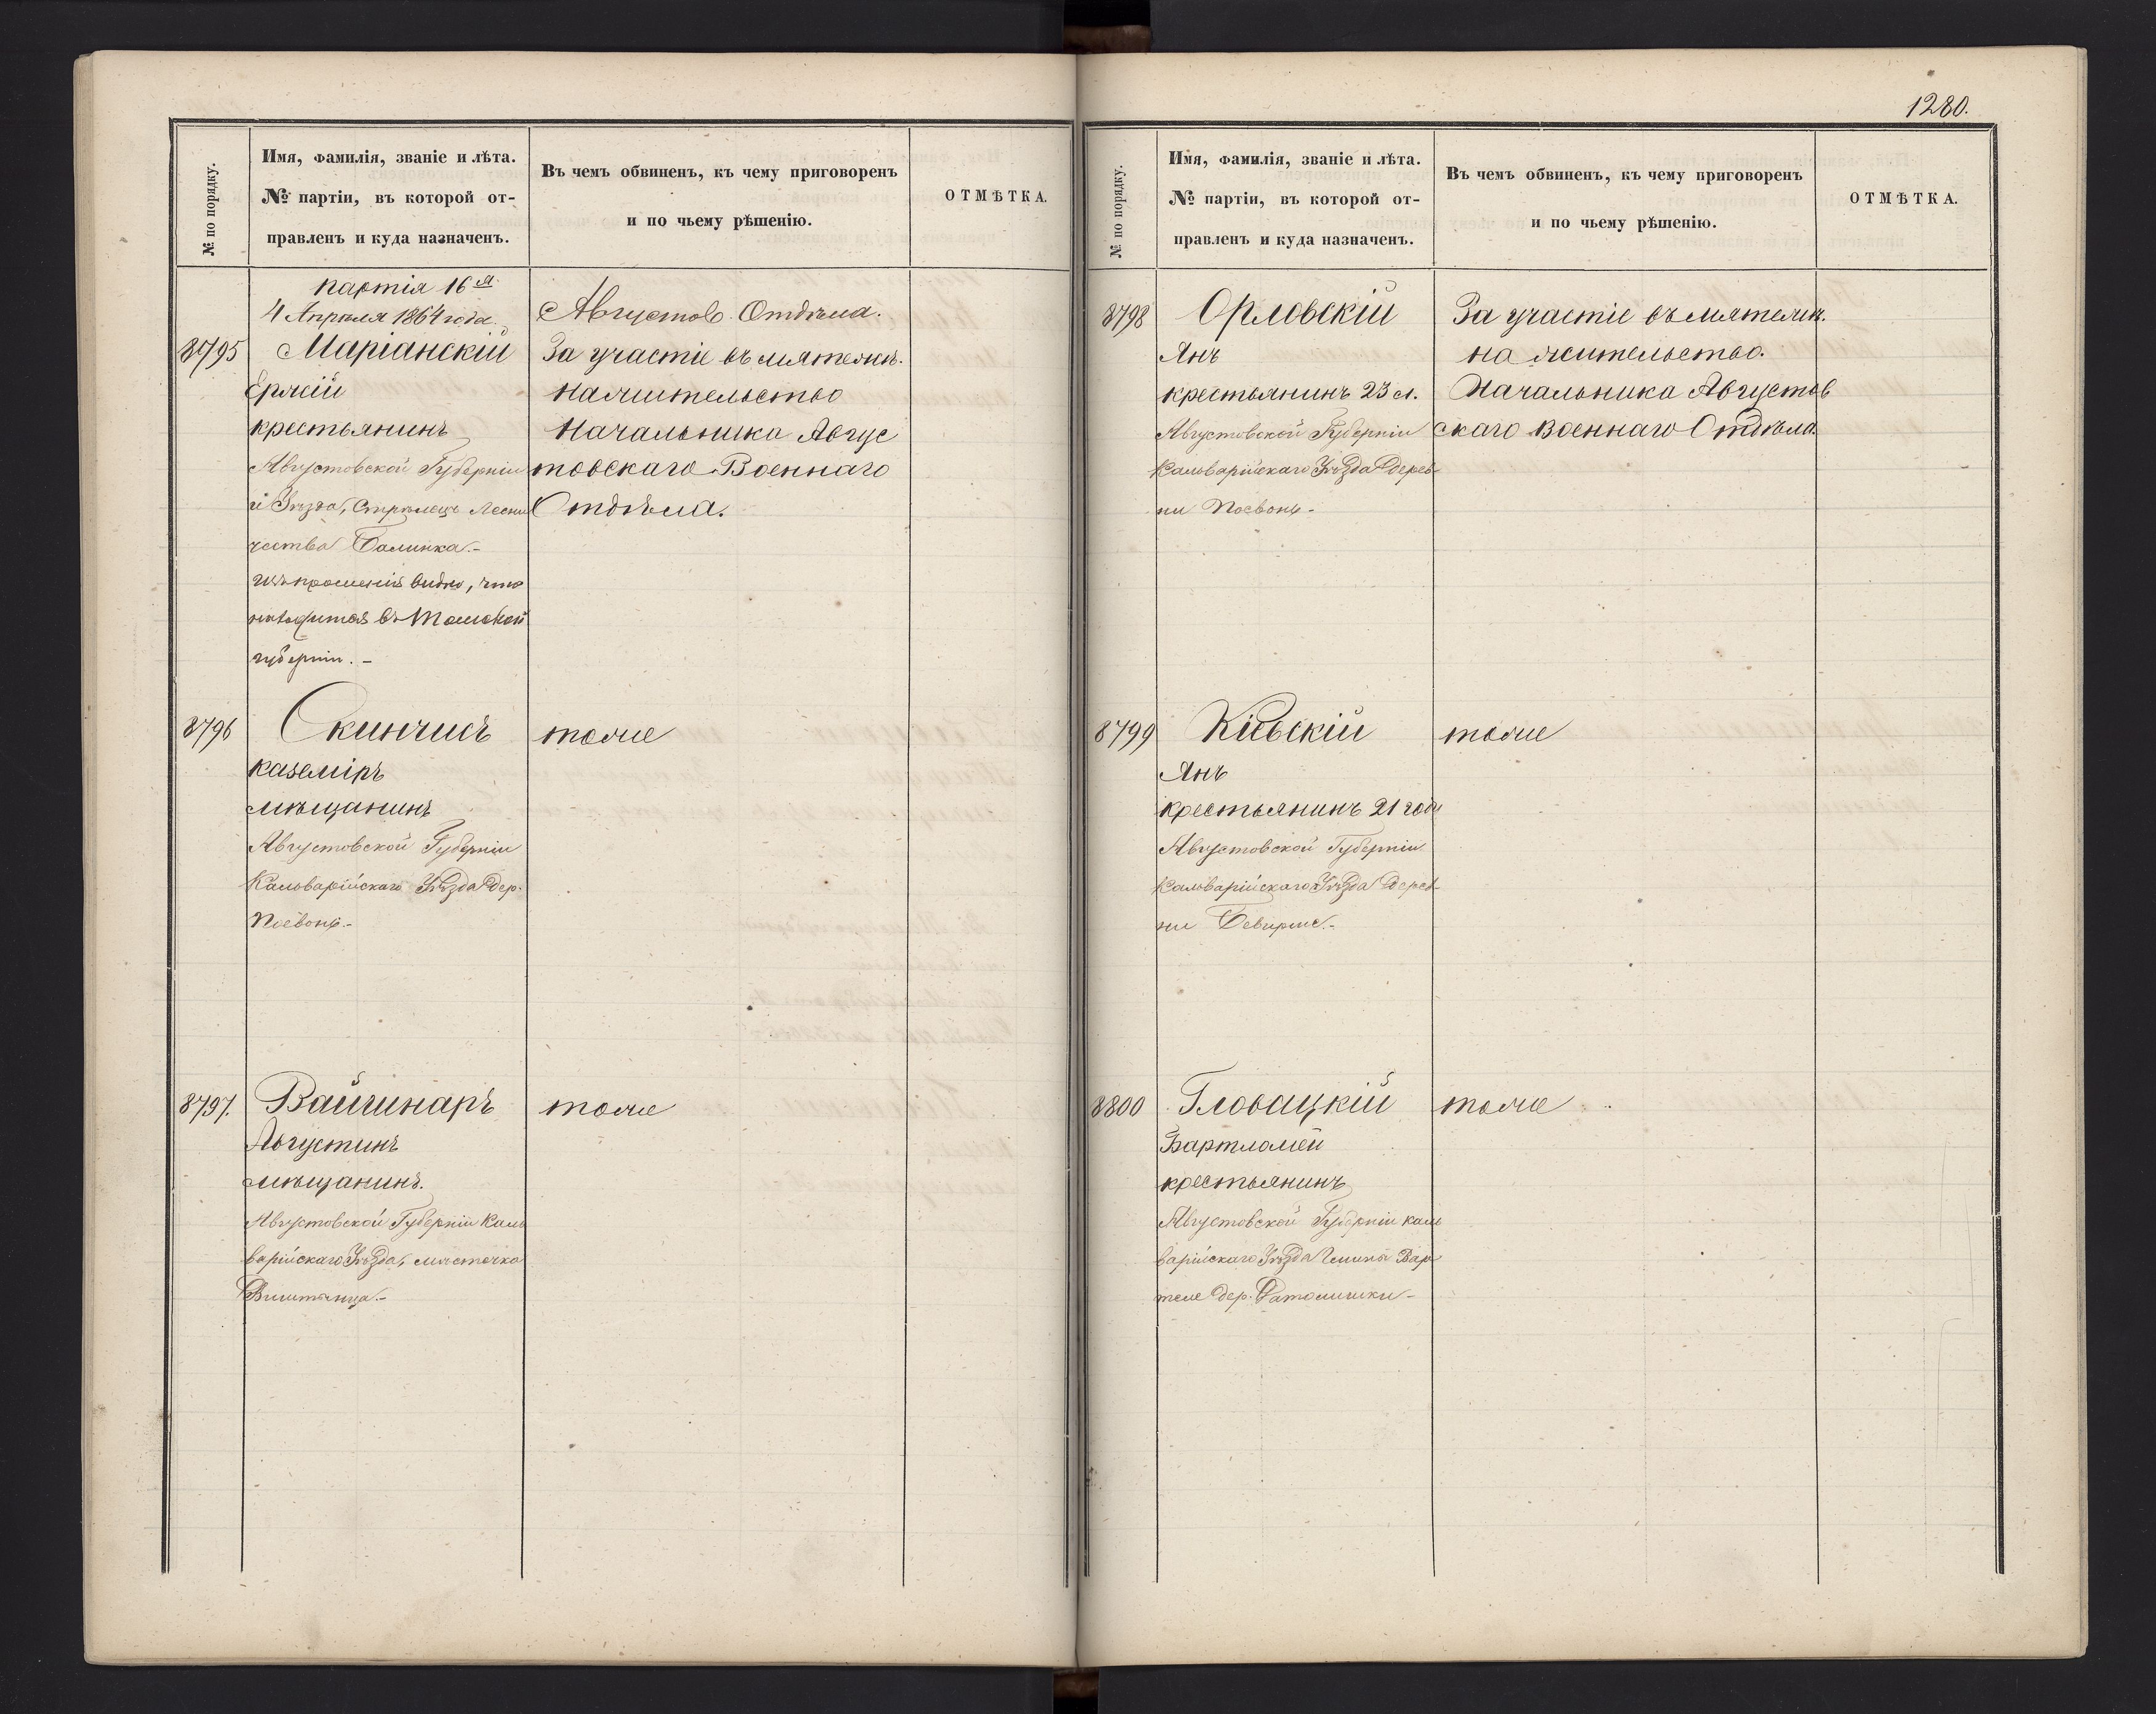 1280.
№ по порядку.
Имя, фамилія, званіе и лѣта.
№ партіи, въ которой от-
правленъ и куда назначенъ.
Въ чемъ обвиненъ, къ чему приговоренъ
и по чьему рѣшенію.
ОТМѢТКА.
партія 16я
4 Апрѣля 1864 года.
Августов. Отдѣла.
8795
Маріанскій
Ержій
крестьянинъ
Августовской Губерніи
и Уѣзда, Стрѣлецъ Лесни
чества Балинка.-
изъ прошенія видно, что
находится въ Томской
губерніи.-
За участіе въ мятежѣ.
на жительство
Начальника Авгус
товскаго Военнаго
Отдѣла.
8796
Скинчисъ
Каземіръ
мѣщанинъ
Августовской Губерніи
Кальварійскаго Уѣзда дер.
Поевонь.-
тоже
8797.
Вайчинаръ
Августинъ
мѣщанинъ.
Августовской Губерніи Каль
варійскаго Уѣзда, мѣстечка
Виштынца.-
тоже
№ по порядку.
Имя, фамилія, званіе и лѣта.
№ партіи, въ которой от-
правленъ и куда назначенъ.
Въ чемъ обвиненъ, къ чему приговоренъ
и по чьему рѣшенію.
ОТМѢТКА.
8798
Орловскій
Янъ
крестьянинъ 23 л.
Августовской Губерніи
Кальварійскаго Уѣзда дерев
ни Поевонь-
За участіе въ мятежѣ.
на жительство.
Начальника Августов
скаго Военнаго Отдѣла.
8799
Кіевскій
Янъ
крестьянинъ 21 года
Августовской Губерніи
Кальварійскаго Уѣзда дерев
ни
тоже
8800
Гловацкій
Бартломей
крестьянинъ
Августовской Губерніи Каль
варійскаго Уѣзда Гмины Бар
теле дер.
тоже